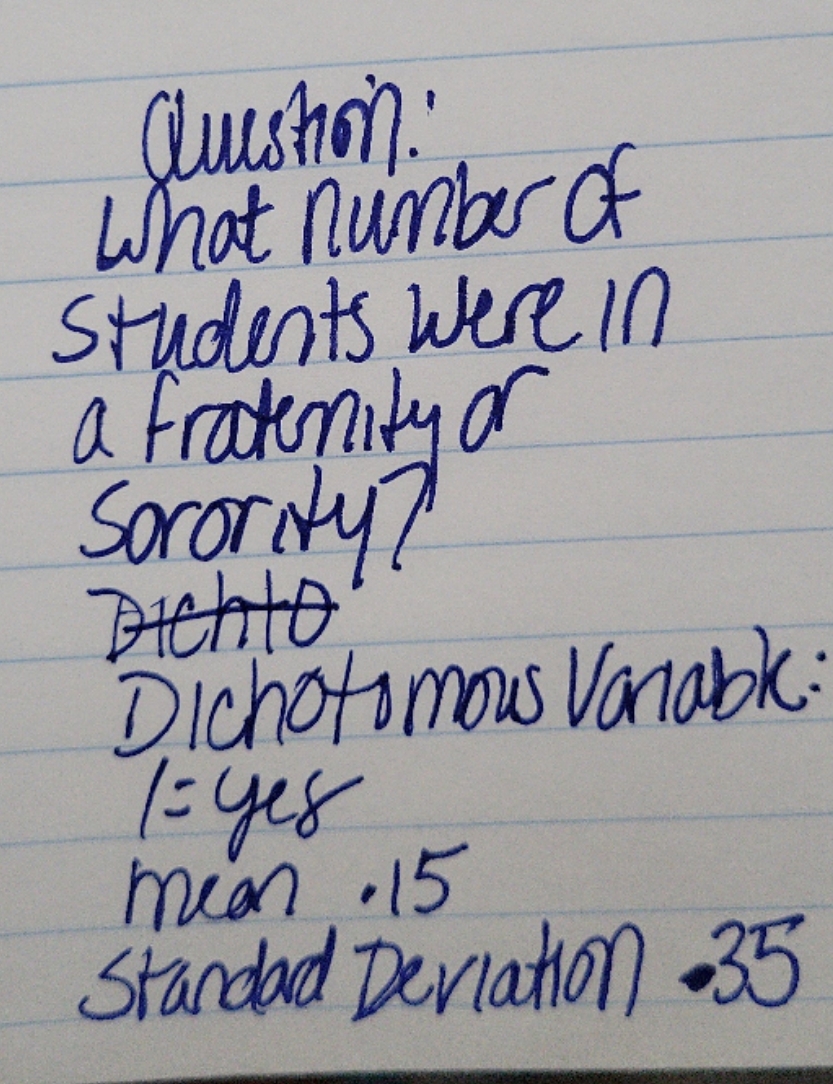 Question:
What number of
Students were in
a fraternity or
Sorority?
Dichto
Dichotomous Variable:
1=yes
mean .15
Standad Deviation .35